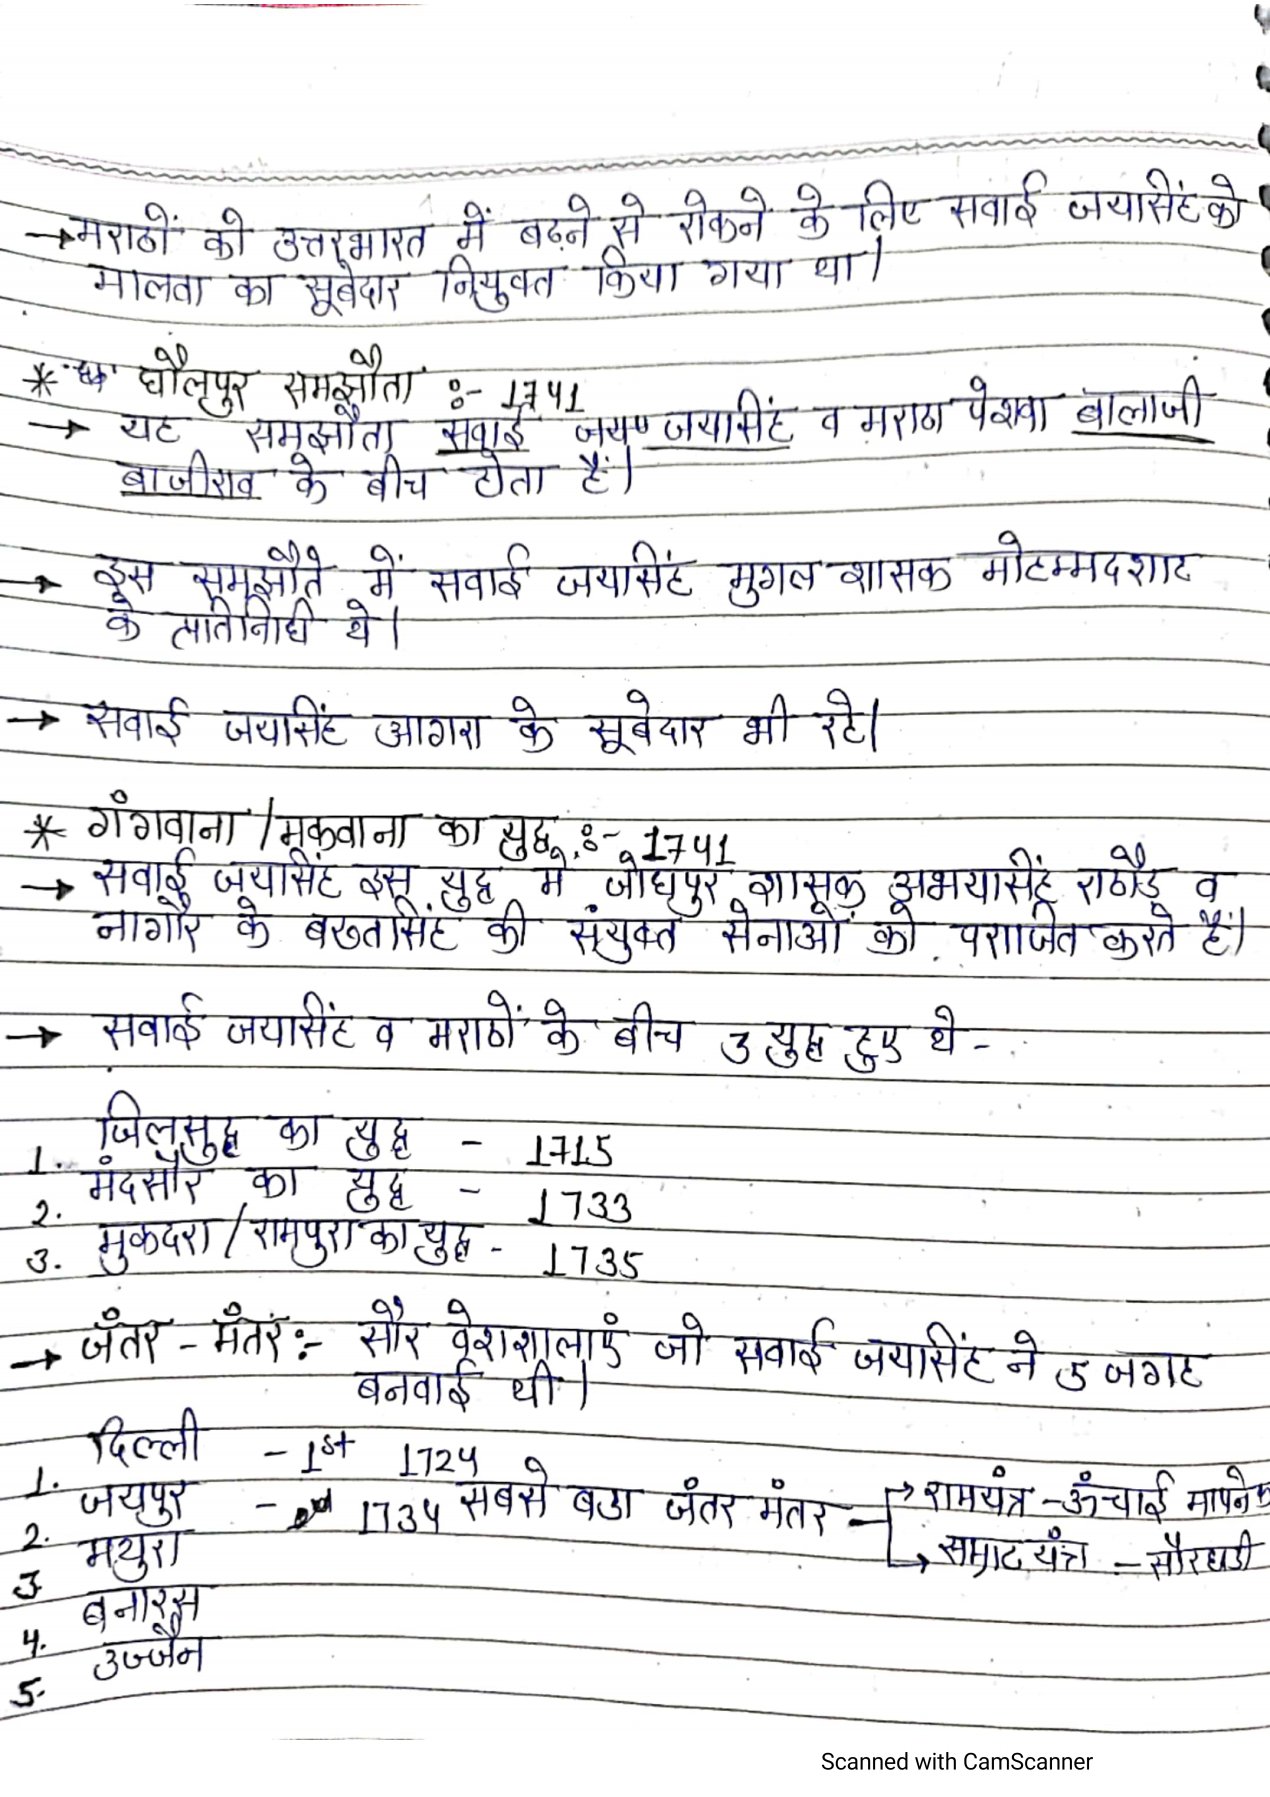 → मराठों को उत्तरभारत में बढ़ने से रोकने के लिए सवाई जयसिंह को
मालवा का सूबेदार नियुक्त किया गया था।
* धौलपुर समझौता :- 1741
→ यह समझौता सवाई जयसिंह व मराठा पेशवा बालाजी
बाजीराव के बीच होता है।
→ इस समझौते में सवाई जयसिंह मुगल शासक मोहम्मदशाह
के प्रतिनिधी थे।
→ सवाई जयसिंह आगरा के सूबेदार भी रहे।
* गंगवाना / मकवाना का युद्ध :- 1741
→ सवाई जयसिंह इस युद्ध में जोधपुर शासक अभयसिंह राठौड़ व
नागौर के बख्तसिंह की संयुक्त सेनाओं को पराजित करते हैं।
→ सवाई जयसिंह व मराठों के बीच 3 युद्ध हुए थे -
1. पिलसुद्ध का युद्ध - 1715
2. मंदसौर का युद्ध - 1733
3. मुकदरा / रामपुरा का युद्ध - 1735
→ जंतर - मंतर :- सौर वेशशालाएं जो सवाई जयसिंह ने 5 जगह
बनवाई थी।
1. दिल्ली - 1st 1724
2. जयपुर - 1734 सबसे बडा जंतर मंतर → रामयंत्र - ऊंचाई मापने
→ सम्राट यंत्र - सौरघडी
3 मथुरा
4. बनारस
5. उज्जैन
Scanned with CamScanner